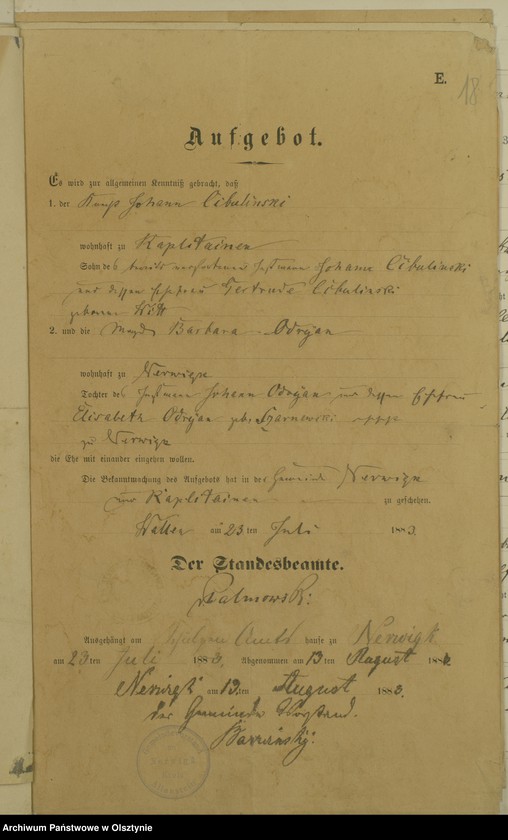 E.
18
Aufgebot.
Es wird zur allgemeinen Kenntniß gebracht, daß
1. der Johann Cibulinski
wohnhaft zu Kaplitainen
Sohn des bereits verstorbenen Johann Cibulinski
und dessen Ehefrau Gertruda Cibulinski
geborenen Witt
2. und die Magd Barbara Odrjan
wohnhaft zu Nerwigk
Tochter des Johann Odrjan und dessen Ehefrau
Elisabeth Odrjan geb.
zu Nerwigk
die Ehe mit einander eingehen wollen.
Die Bekanntmachung des Aufgebots hat in der Gemeinde Nerwigk
und Kaplitainen zu geschehen.
am 23 ten Juli 1883.
Der Standesbeamte.
Palmowski
Ausgehängt am Schulzen Amts hause zu Nerwigk
am 23 ten Juli 1883. Abgenommen am 13 ten August 188
Nerwigk am 13 ten August 1883.
der Gemeinde Vorstand.
Archiwum Państwowe w Olsztynie